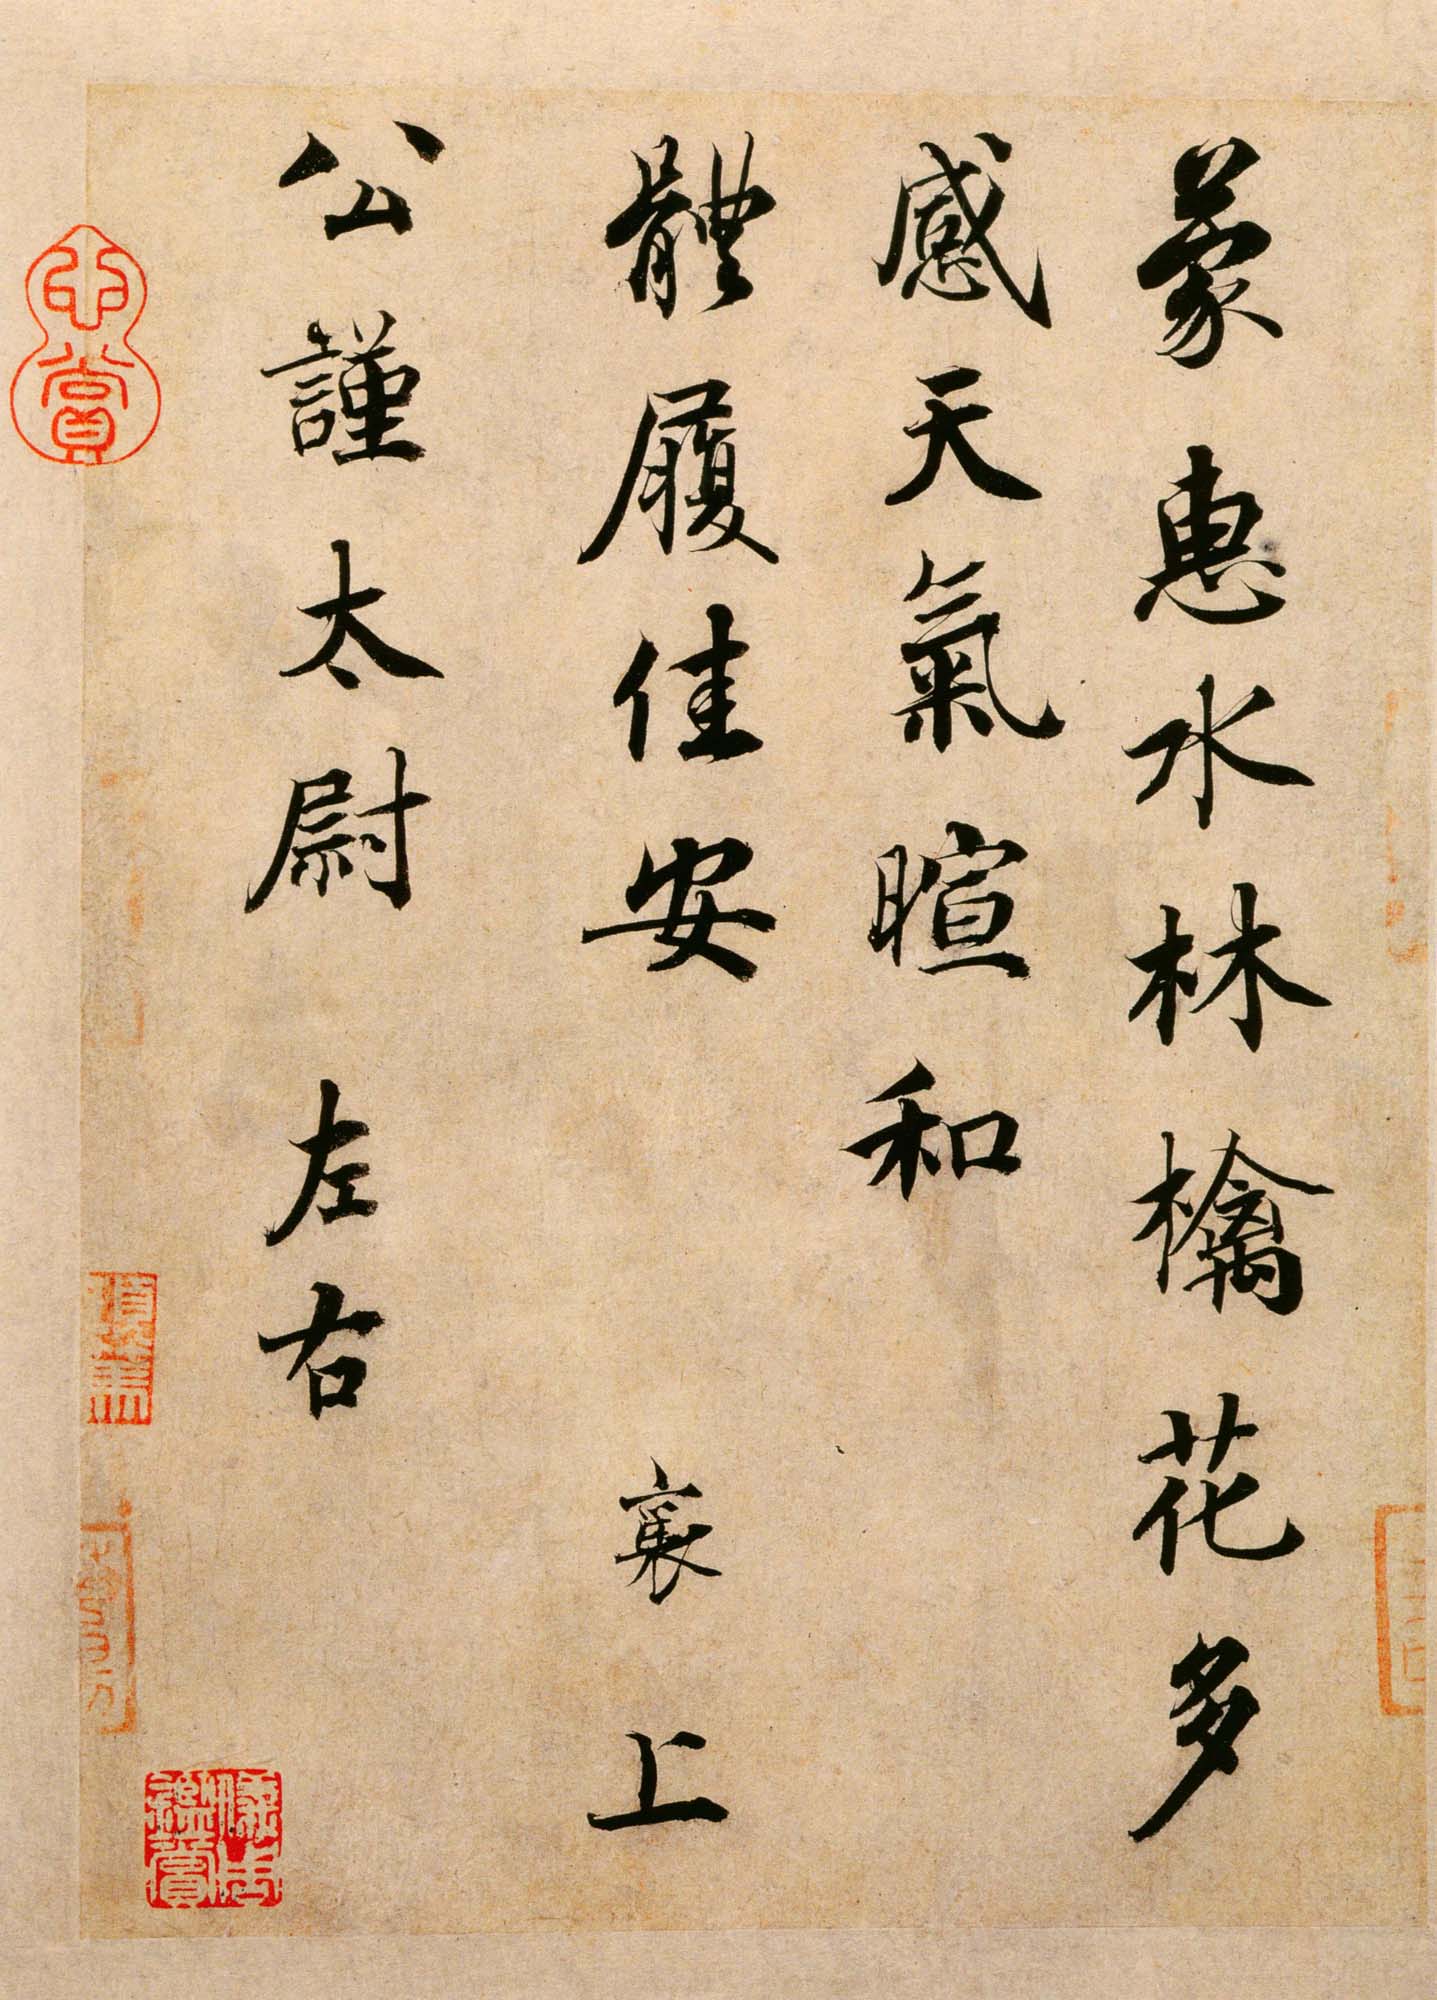 蒙惠水林檎花多
感天氣暄和
體履佳安　襄上
公謹太尉　左右
心賞
儀周鑑賞